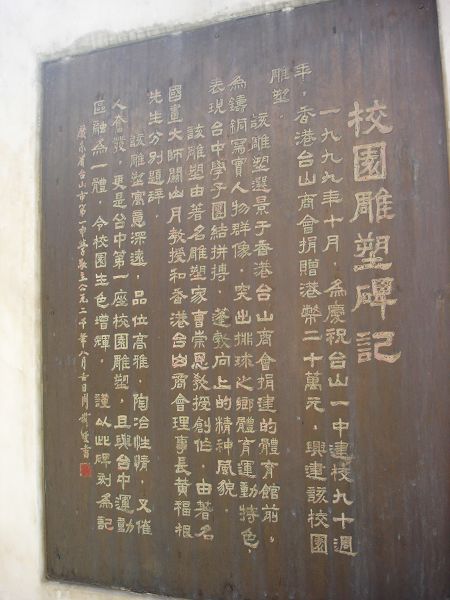 校園雕塑碑記
一九九九年十月，為慶祝台山一中建校九十週
年，香港台山商會捐贈港幣二十萬元，興建該校園
雕塑。
該雕塑選景于香港台山商會捐建的體育館前，
為鑄銅寫實人物群像，突出排球之鄉體育運動特色，
表現台中學子團結拼搏、蓬勃向上的精神風貌。
該雕塑由著名雕塑家曹崇恩教授創作，由著名
國畫大師關山月教授和香港台山商會理事長黃福根
先生分別題詳。
該雕塑寓意深遠，品位高雅，陶冶性情，又催
人奮發，更是台中第一座校園雕塑，且與台中運動
區融為一體，令校園生色增輝。謹以此碑刻為記
廣東省台山市第一中學敬立公元二千年八月